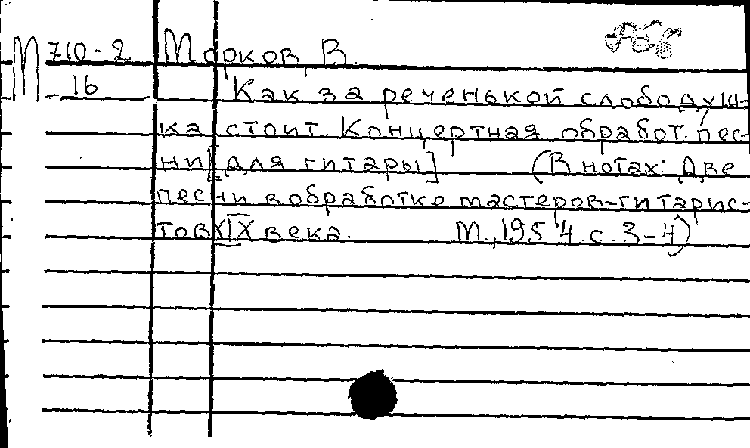 М 710-2 Марков, В.
16 Как за реченькой слободуш-
ка стоит Концертная обработ. пес-
ни [для гитары] (В нотах: Две
песни в обработке мастеров-гитарис-
тов XIX века. М., 1954 с. 3-4)